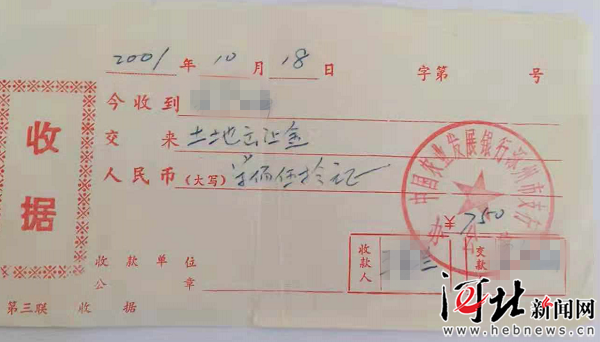 2001 年 10 月 18 日 字第 号
收据
今收到
交来 土地出让金
人民币 (大写) 柒佰伍拾元
¥ 750
中国农业发展银行深州市支行
办公室
收款单位
公章
收款人
交款
第三联 收据
河北新闻网
www.hebnews.cn